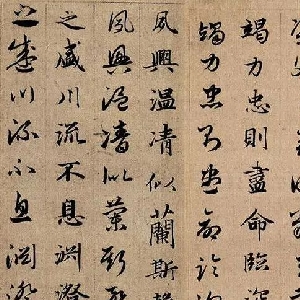 竭力忠則盡命臨深
竭力忠則盡命臨
夙興温凊似蘭斯
夙興温凊似蘭斯
之盛川流不息淵澄
之盛川流不息淵澄